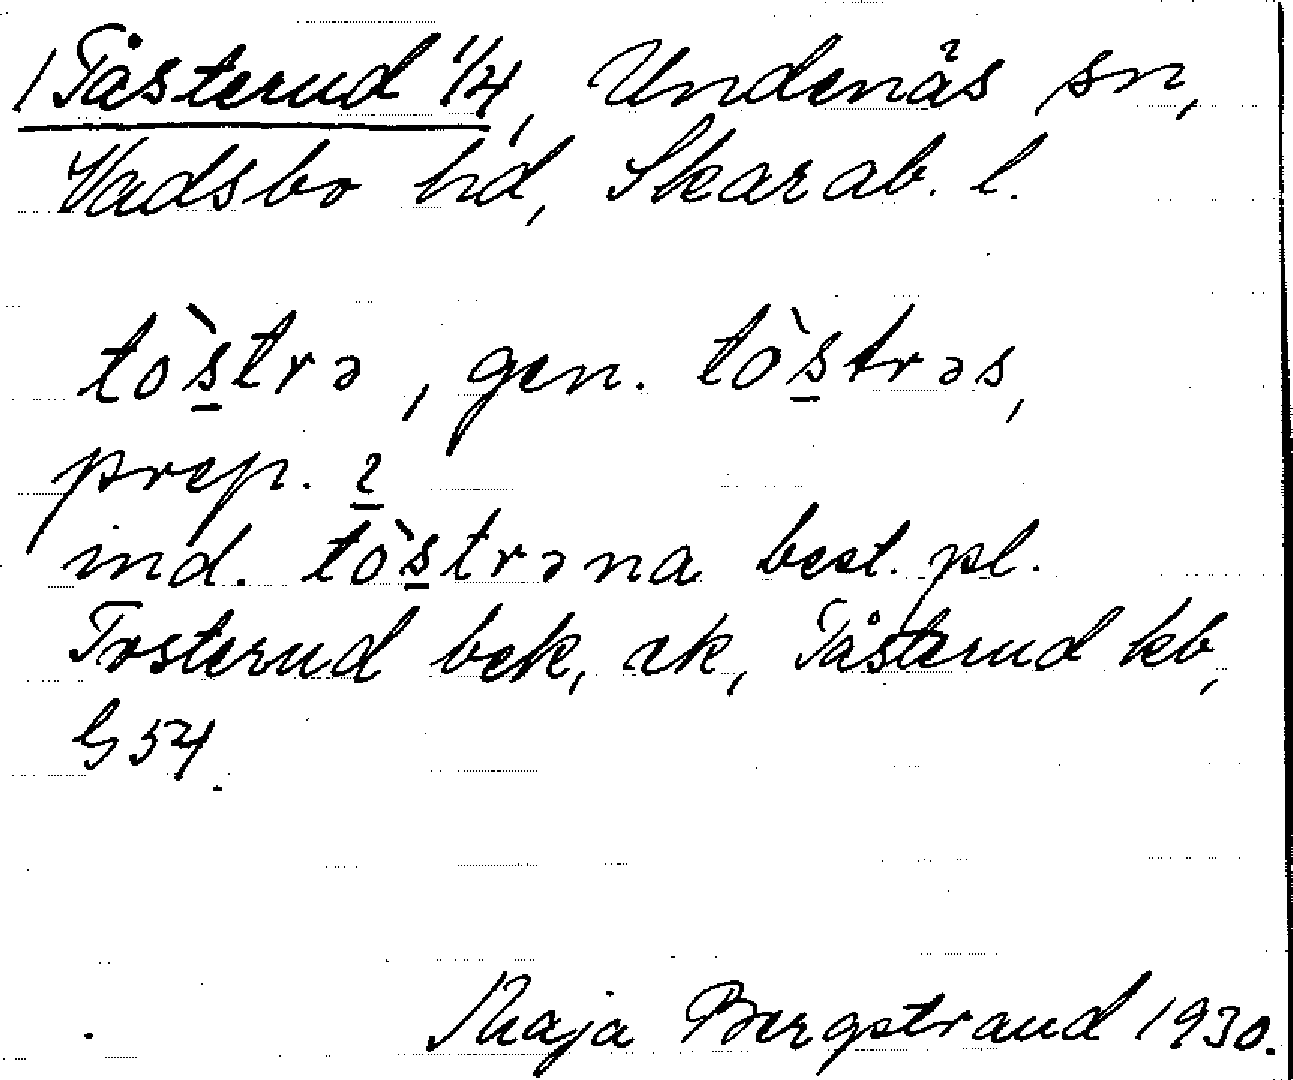 1 Tåsterud 1/4, Undenäs sn,
Vadsbo hd, Skarab. l.
to`s̲trə, gen. to`s̲trəs,
prep. i̲
ind. to`s̲trəna best. pl.
Tosterud bek, ek, Tåsterud kb,
G54.
Maja Bergstrand 1930.